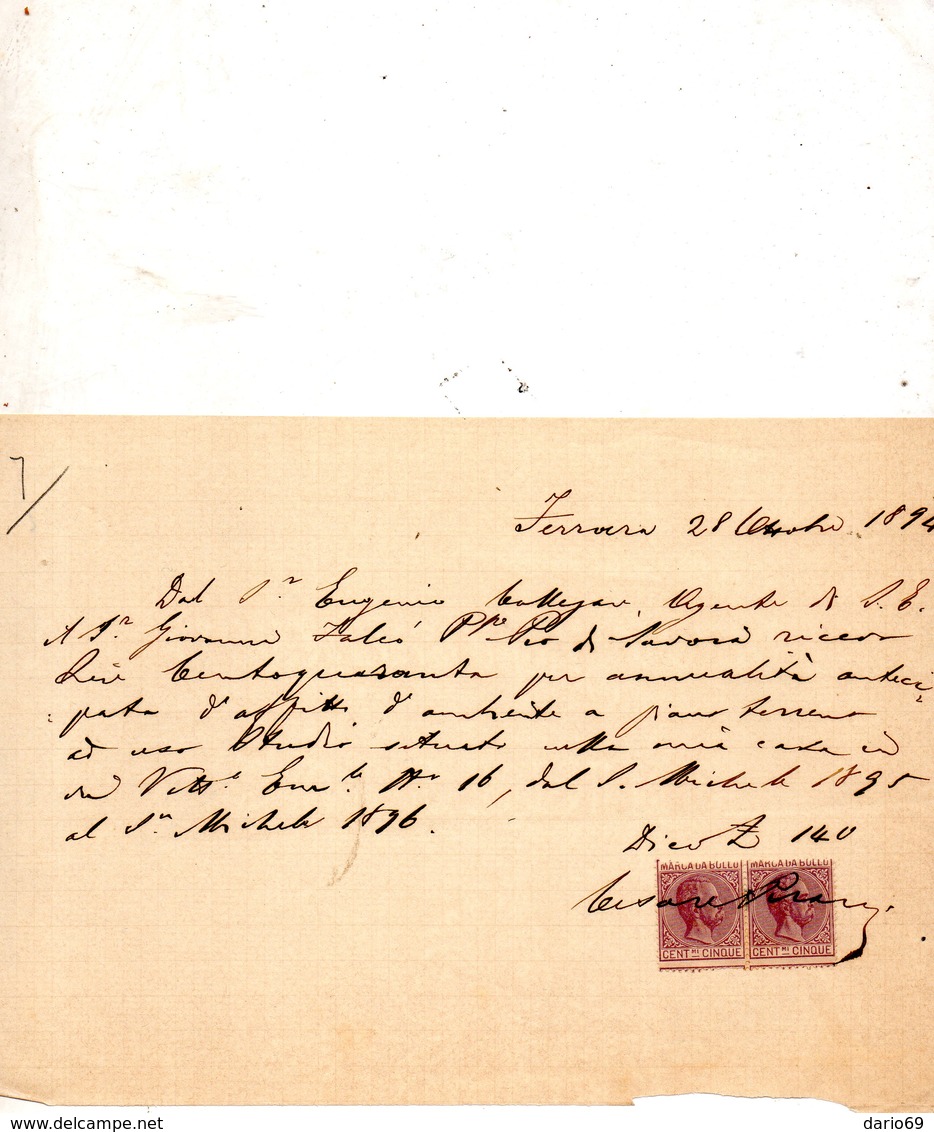 7/
Ferrara 28 Ottobre 1894
Dal S.r Eugenio Agente di S. E.
il S.r Giovanni Falcó P.pe Pio di Savoia ricevo
Lire Centoquaranta per annualità anteci=
=pata d'affitto d'ambiente a piano terreno
ad uso Studio situato nella mia casa in
via Vitt.o Em.le N.o 16, dal S. Michele 1895
al S.n Michele 1896.
Dico £ 140
MARCA DA BOLLO MARCA DA BOLLO
Cesare
CENT.MI CINQUE CENT.MI CINQUE
delcampe.net
dario69